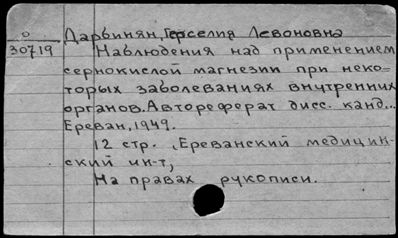 о
30719
Дарьинян, Герселия Левоновна
Наблюдения над применением
сернокислой магнезии при неко-
торых заболеваниях внутренних
органов. Автореферат дисс. канд...
Ереван, 1949.
12 стр. Ереванский медицин-
ский ин-т,
На правах рукописи.